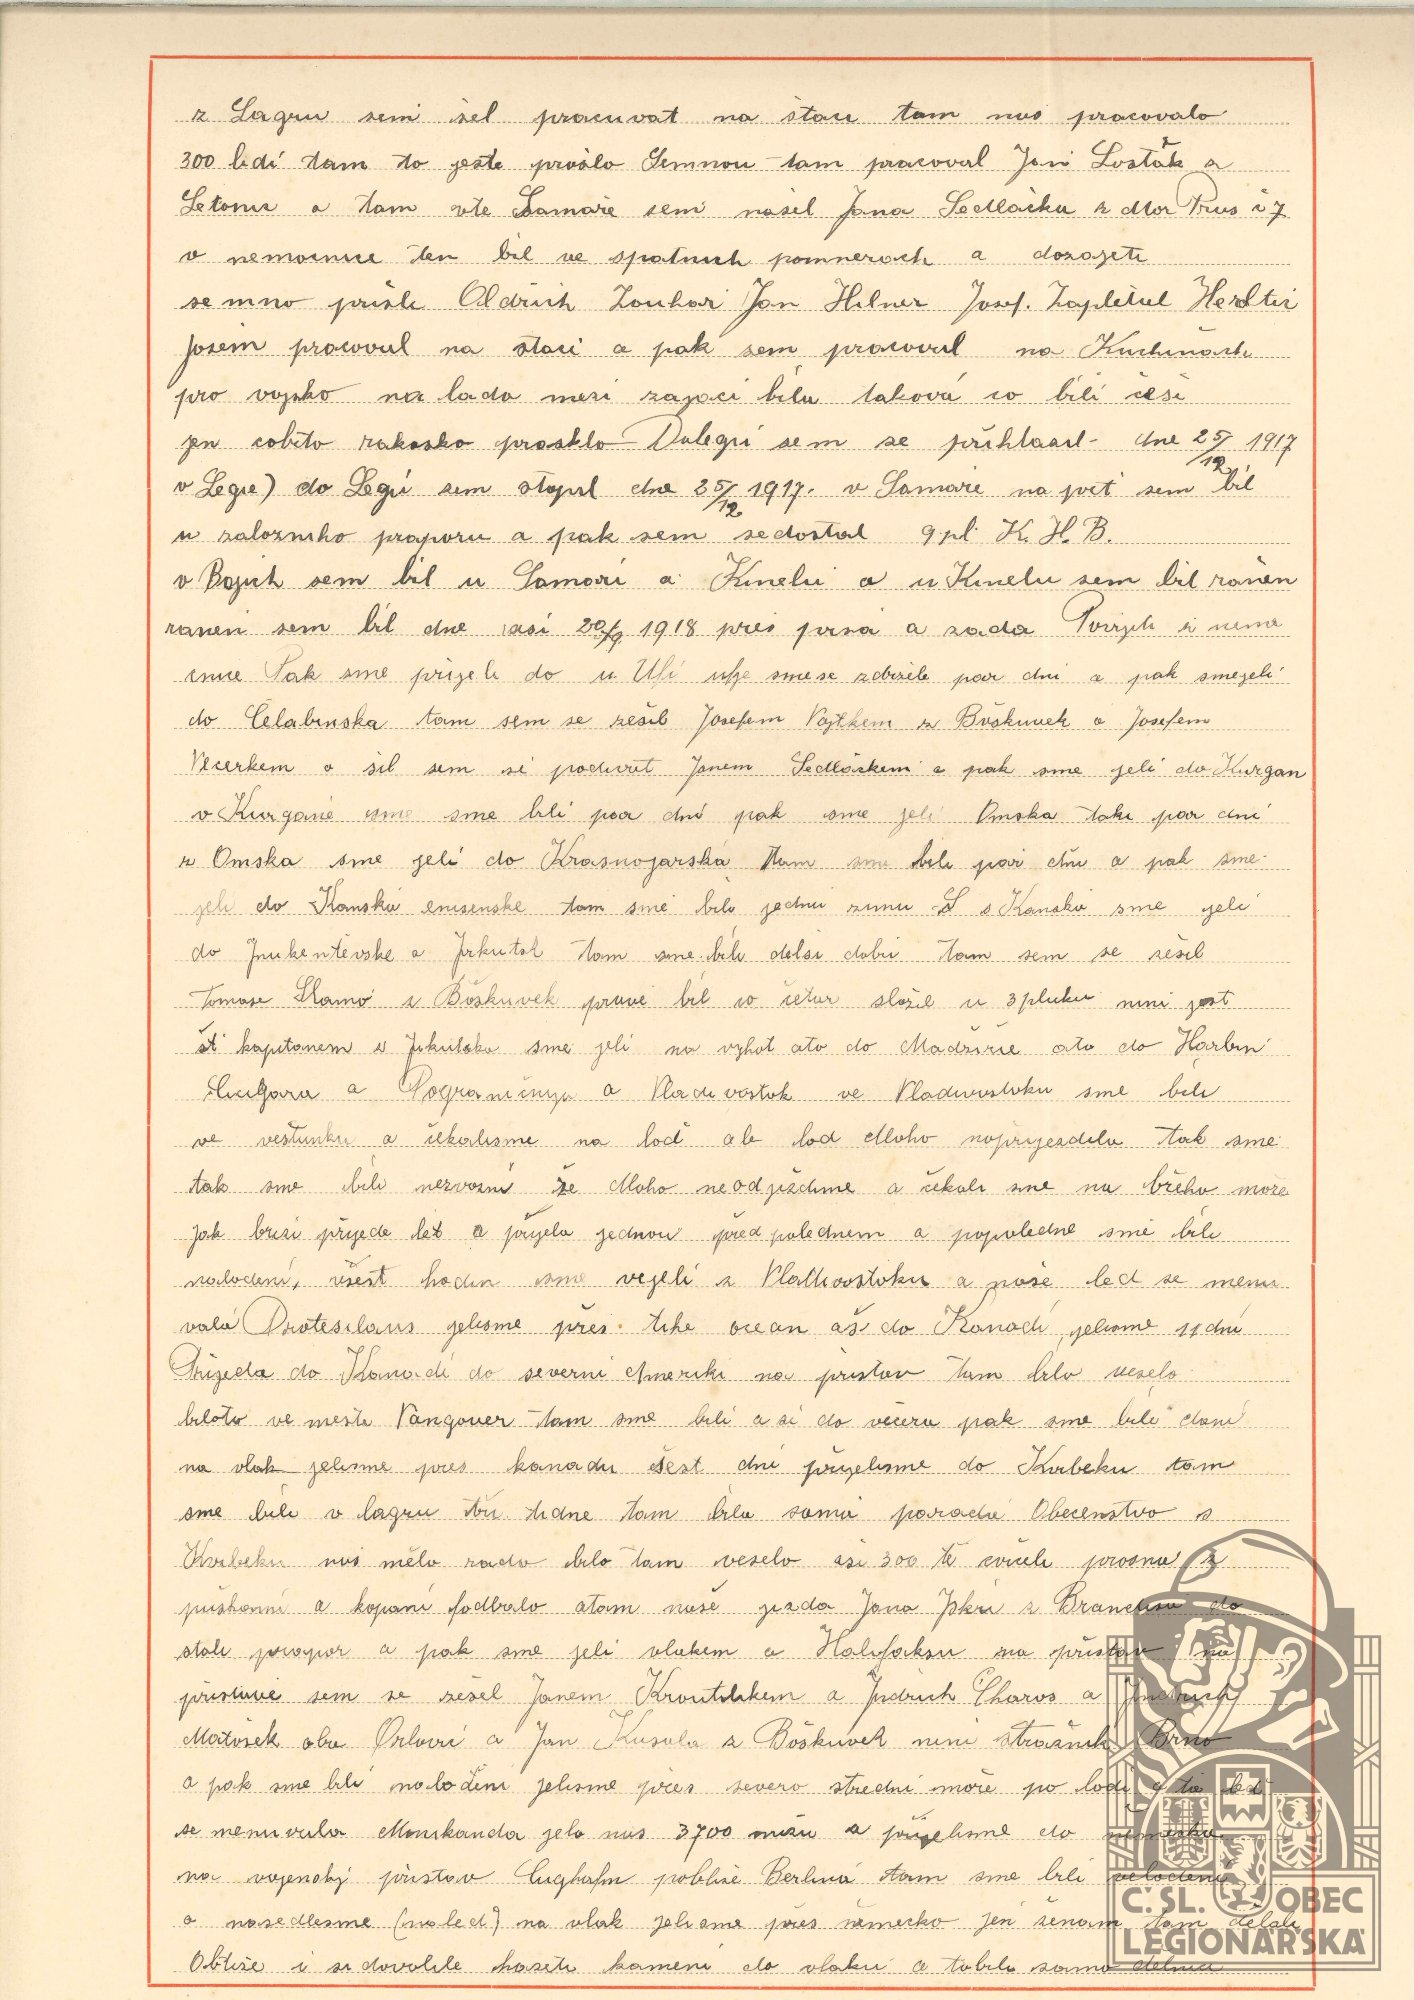 z Lagru semi šel pracuvat na štaci tam nas pracovalo
300 lidi tam to ješte prošlo Semnou tam pracoval Jan Losťák a
Letoniz a tam vte Samaře semi našel Jana Sedlačka z dtor Prus č 7
v nemocnice ten bil ve špatnich pomnerach a dozajeti
semno prišli Oldrich Zouhar Jan Hilner Josef. Zapletal
Josem pracoval na štaci a pak sem pracoval na Kuchinach
pro vojsko nalado mezi zajaci bila taková co bili češi
jen cobito rakosko prosklo Dolegii sem se přihlasil dne 25/12 1917
v Legie) do Legii sem stopil dne 25/12 1917. v Samaře na přet sem bil
u zalozniho praporu a pak sem sedostal 9 pl K. H. B.
v Bojich sem bil u Samari a Kinelu a u Kinelu sem bil raněn
ranen sem bil dne asi 20/9 1918 přes prsa a zada
Tak sme prijeli do u Ufi ufje smese zdržele par dni a pak smejeli
do Čelabinska tam sem se zešil Josefem Vojtkem z Boškuvek a Josefem
Vecerkem a šil sem se podivat Janem Sedláčkem a pak sme jeli do Kurgan
v Kurganě sme sme bili par dni pak sme jeli Omska taki par dni
z Omska sme jeli do Krasnojarska tam sme bili par dni a pak sme
jeli do Kanska enisenske tam sme bili jednu zimu s Kanska sme jeli
do Inukentěvske a Irkutsk tam sme bili delsi dobu tam sem se zešel
Tomase Slamo z Boškuvek prave bil co četař složil u 3 pluku nini jest
št kapitanem z Irkutska sme jeli na vyhot ato do Madžirie ato do Harbin
a Pograničnja a Vladivostok ve Vladivostoku sme bili
ve veštunku a čekalisme na loď ale lod dloho nepřijezdila tak sme
tak sme bili nervozni že dloho neodjiždime a čekali sme na břeho može
jak brzi přijede loď a přijela jednou před polednem a popoledne sme bili
nalodeni, všest hodin sme vejeli z Vladivostoku a naše loď se menu
vala Protesilaus jelisme přes tihe ocean aš do Kanadi jelisme 11 dni
Přijeda do Kanadi do severni Ameriki na pristav tam bilo veselo
biloto ve meste Vangover tam sme bili a si do večera pak sme bili dani
na vlak jelisme pres kanadu šest dni přijelisme do Kvbeku tam
sme bili v lagru tři tidne tam bila sama parada Obecenstvo s
Kvbeku nas mělo rado bilo tam veselo asi 300 tě cvičili prosna z
puškami a kopani fodbalo atam naše jizda Jana Iskri z Brandisu do
stali prapor a pak sme jeli vlakem a Halifaksu na přistav na
přistavě sem se zešel Janem Kroutilikem a Jndrich Charos a Jndrich
Matošek oba Orlovi a Jan Kusala z Boškuvek nini stražnik Brno
a pak sme bili naloženi jelisme přes severo středni moře po lodi a ta loď
se menuvala Monikanda jelo nas 3700 mužu a přijelisme do německa
na vojenskj přistav Cughafn pobliže Berlina tam sme bili velodeni
a nasedlisme (naled) na vlak jelisme přes německo jen ženam tam dělali
Obtiže i si dovolile hazeti kameni do vlaku a tobila sama dělnici
Č. SL. OBEC
LEGIONÁŘSKÁ